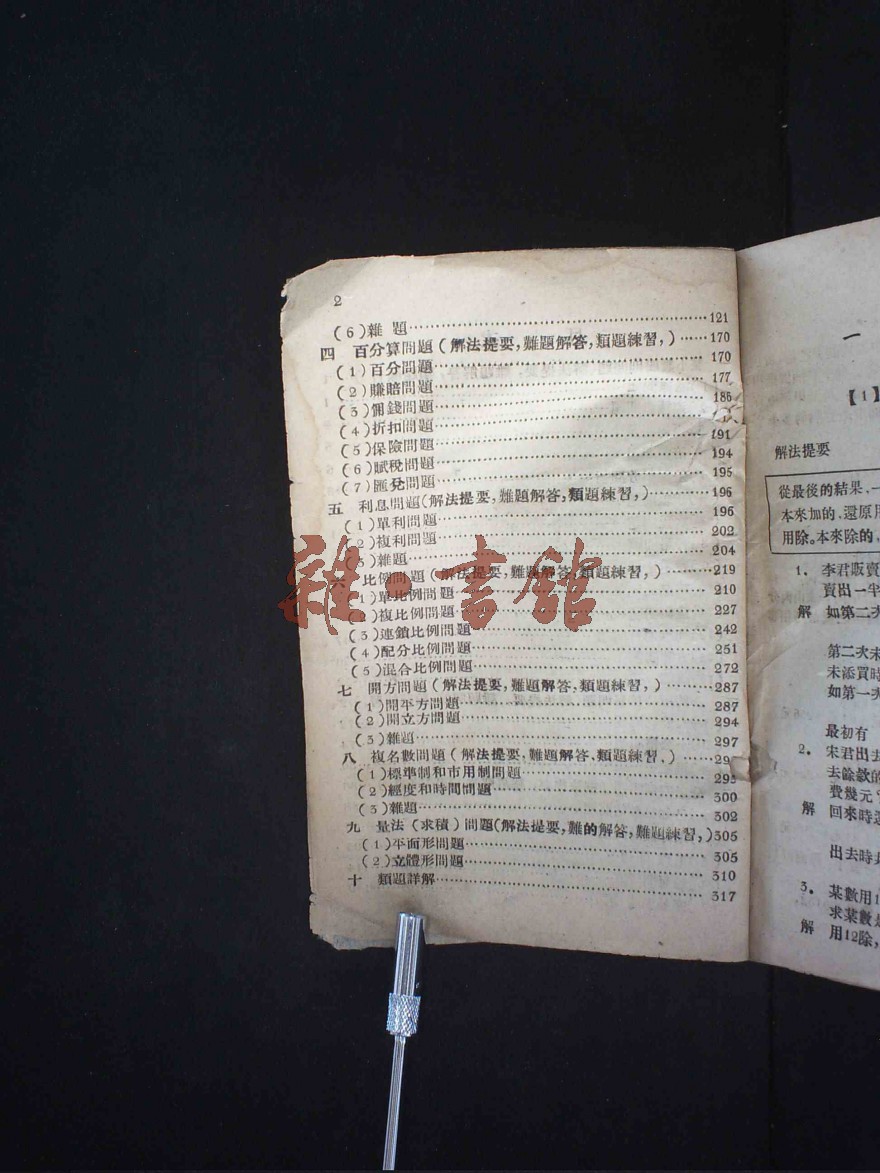 2
(6)雜 題……121
四 百分算問題(解法提要,難題解答,類題練習,)……170
(1)百分問題……170
(2)賺賠問題……177
(3)佣錢問題……186
(4)折扣問題……
(5)保險問題……191
(6)賦稅問題……194
(7)匯兌問題……195
五 利息問題(解法提要,難題解答,類題練習,)……196
(1)單利問題……196
(2)複利問題……202
(3)雜題……204
六 比例問題(解法提要,難題解答,類題練習,)……219
(1)單比例問題……210
(2)複比例問題……227
(3)連鎖比例問題……242
(4)配分比例問題……251
(5)混合比例問題……272
七 開方問題(解法提要,難題解答,類題練習,)……287
(1)開平方問題……287
(2)開立方問題……294
(3)雜題……297
八 複名數問題(解法提要,難題解答,類題練習,)……29
(1)標準制和市用制問題……295
(2)經度和時間問題……300
(3)雜題……302
九 量法(求積)問題(解法提要,難的解答,難題練習,)305
(1)平面形問題……305
(2)立體形問題……310
十 類題詳解……317
雜 書館
一
【1】
解法提要
從最後的結果,一
本來加的,還原用
用除。本來除的,
1. 李君販賣
賣出一半
解 如第二次
第二次未
未添買時
如第一次
最初有
2. 宋君出去
去餘款的
費幾元
解 回來時還
出去時身
3. 某數用1
求某數是
解 用12除,